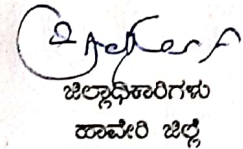 ಜಿಲ್ಲಾಧಿಕಾರಿಗಳು
ಹಾವೇರಿ ಜಿಲ್ಲೆ